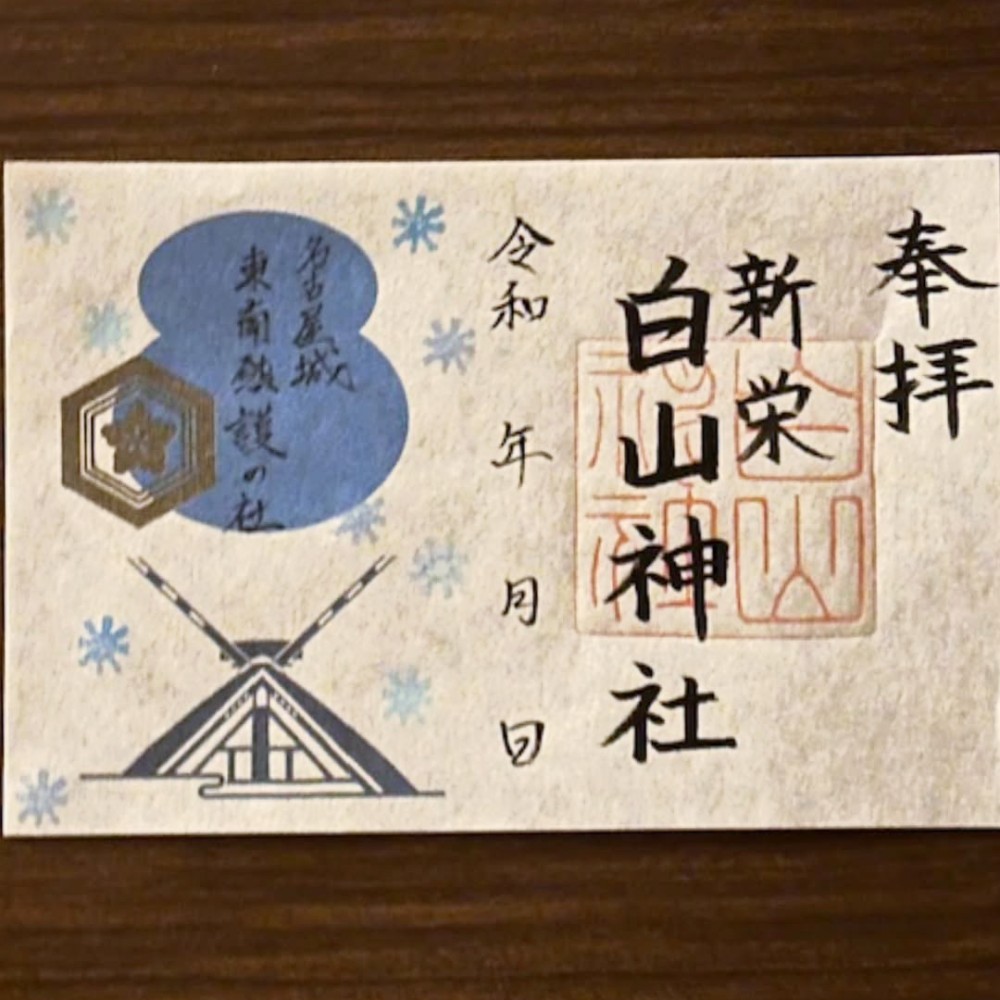 奉拝
新栄
白山神社
令和 年 月 日
名古屋城
東南鎮護の社